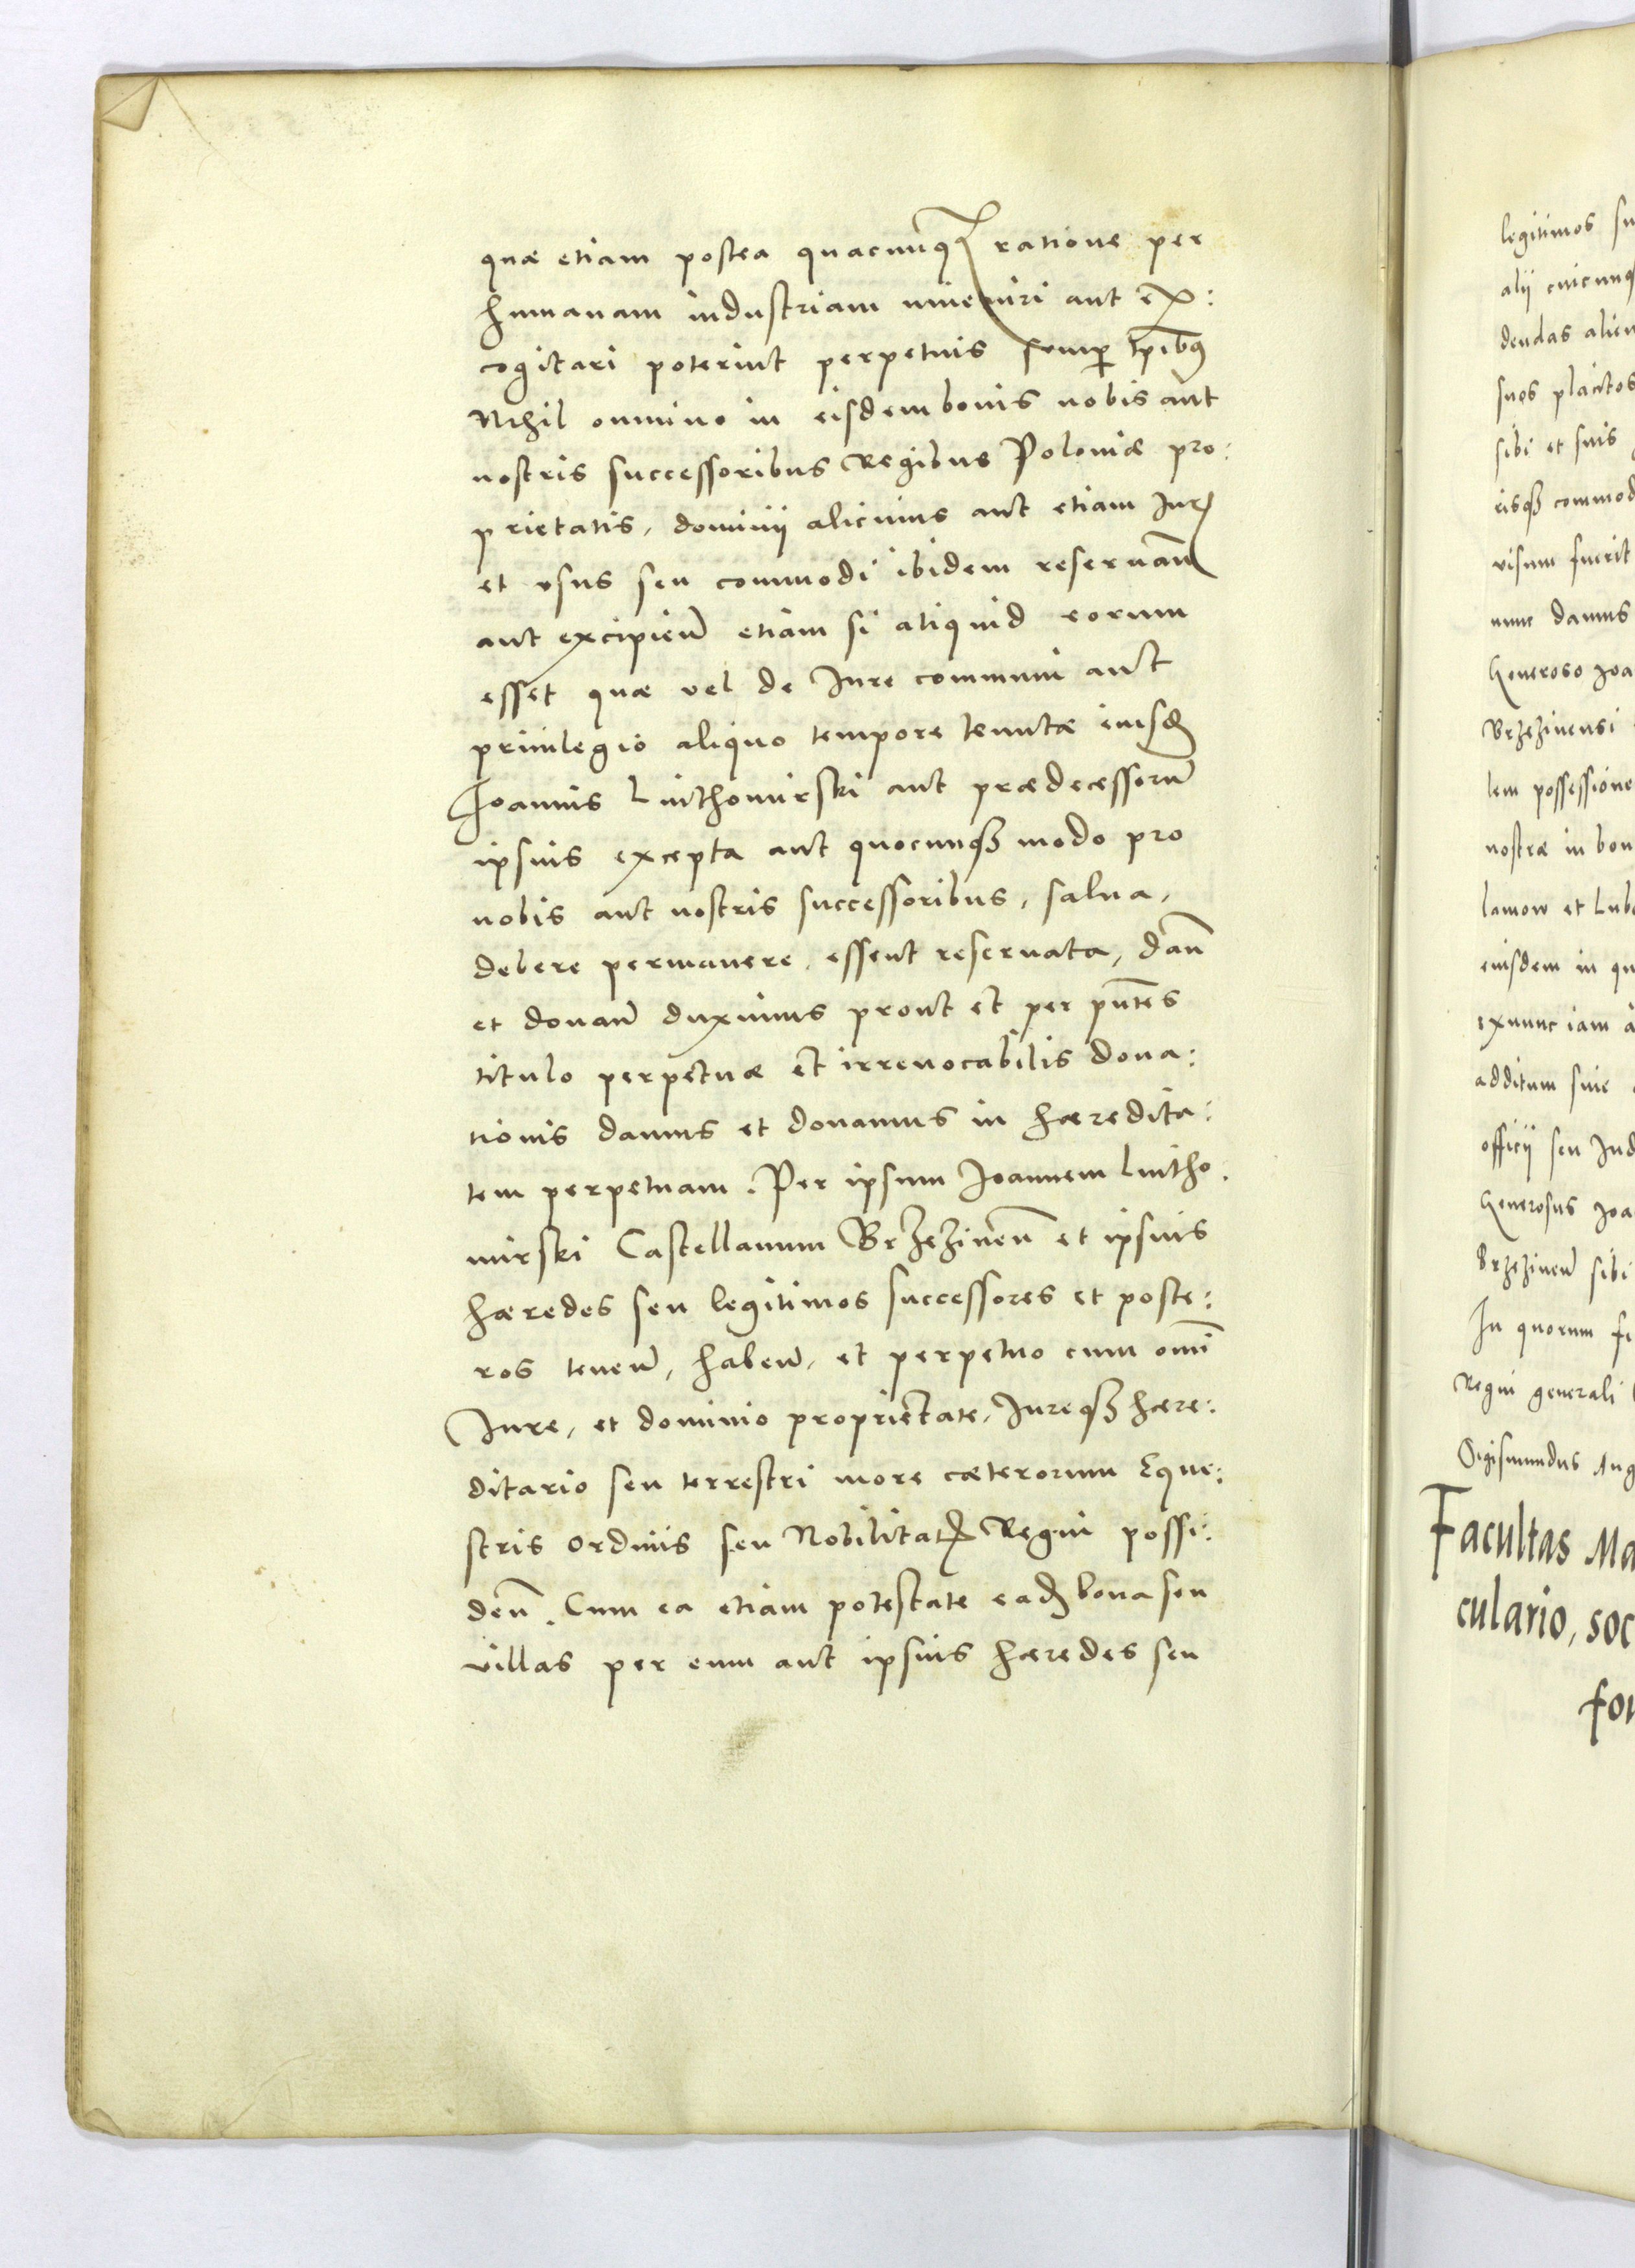 quæ etiam postea quacunqꝫ ratione per
humanam industriam inveniri aut ex:
cogitari poterint perpetuis semp tpibus
Nihil omnino in eisdem bonis nobis aut
nostris successoribus Regibus Poloniæ pro:
prietatis, dominii alicuius aut etiam Juris
et usus seu commodi ibidem reservan̄
aut excipien̄ etiam si aliquid eorum
esset quæ vel de Jure communi aut
privilegio aliquo tempore tenutæ eiusdē
Joannis Luthomirski aut prædecessorū
ipsius excepta aut quocunqꝫ modo pro
nobis aut nostris successoribus, salva,
debere permanere, essent reservata, dan̄
et donan̄ duximus prout et per pn̄tes
titulo perpetuæ et irrevocabilis dona:
tionis damus et donamus in hæredita:
tem perpetuam. Per ipsum Joannem Lutho:
mirski Castellanum Brzezinen̄ et ipsius
hæredes seu legitimos successores et poste:
ros tenen̄, haben̄, et perpetuo cum omī
Jure, et dominio proprietate, Jureqꝫ hære:
ditario seu terrestri more cæterorum Eque:
stris ordinis seu Nobilitatis Regni possi:
den̄. Cum ea etiam potestate eadē bona seu
villas per eum aut ipsius hæredes seu
legitimos su
alii cuicunqꝫ
dendas alien
suos placitos
sibi et suis
risqꝫ commod
visum fuerit
nunc damus
Generoso Joa
Brzezinensi
lem possessione
nostræ in bon
lamow et Lub
eiusdem in qu
exnunc iam a
additum sive
officii seu Jud
Generosus Joa
Brzezinen̄ sibi
In quorum fi
Regni generali
Sigismundus Aug
Facultas Ma
culario, soc
fon